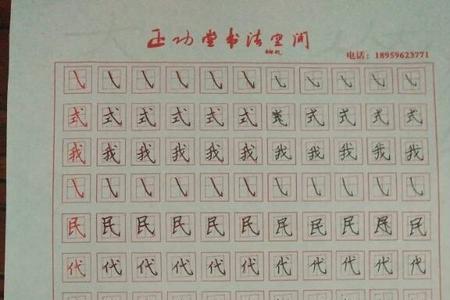 正功堂书法空间
电话：18959623771
㇂ ㇂ ㇂ ㇂ ㇂ ㇂ ㇂ ㇂ ㇂ ㇂ ㇂
式 式 式 式 式 式 式 式 式 式 式
我 我 我 我 我 我 我 我 我 我 我
㇂ ㇂ ㇂ ㇂ ㇂ ㇂ ㇂ ㇂ ㇂ ㇂ ㇂
民 民 民 民 民 民 民 民 民 民 民
代 代 代 代 代 代 代 代 代 代 代